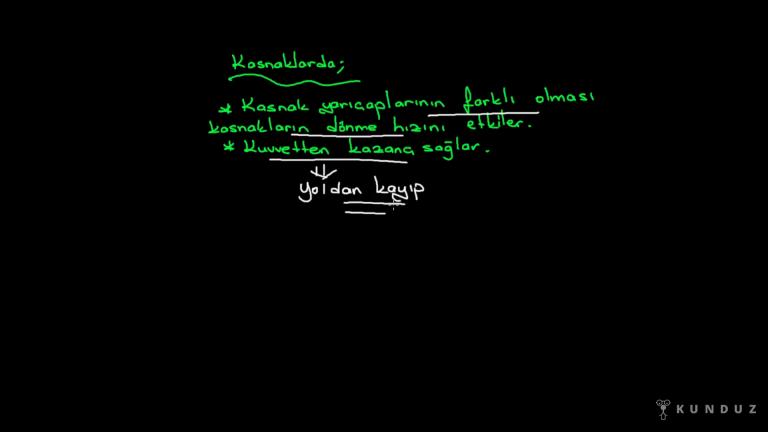 Kasnaklarda;
* Kasnak yarıçaplarının farklı olması
kasnakların dönme hızını etkiler.
* Kuvvetten kazanç sağlar.
yoldan kayıp
KUNDUZ